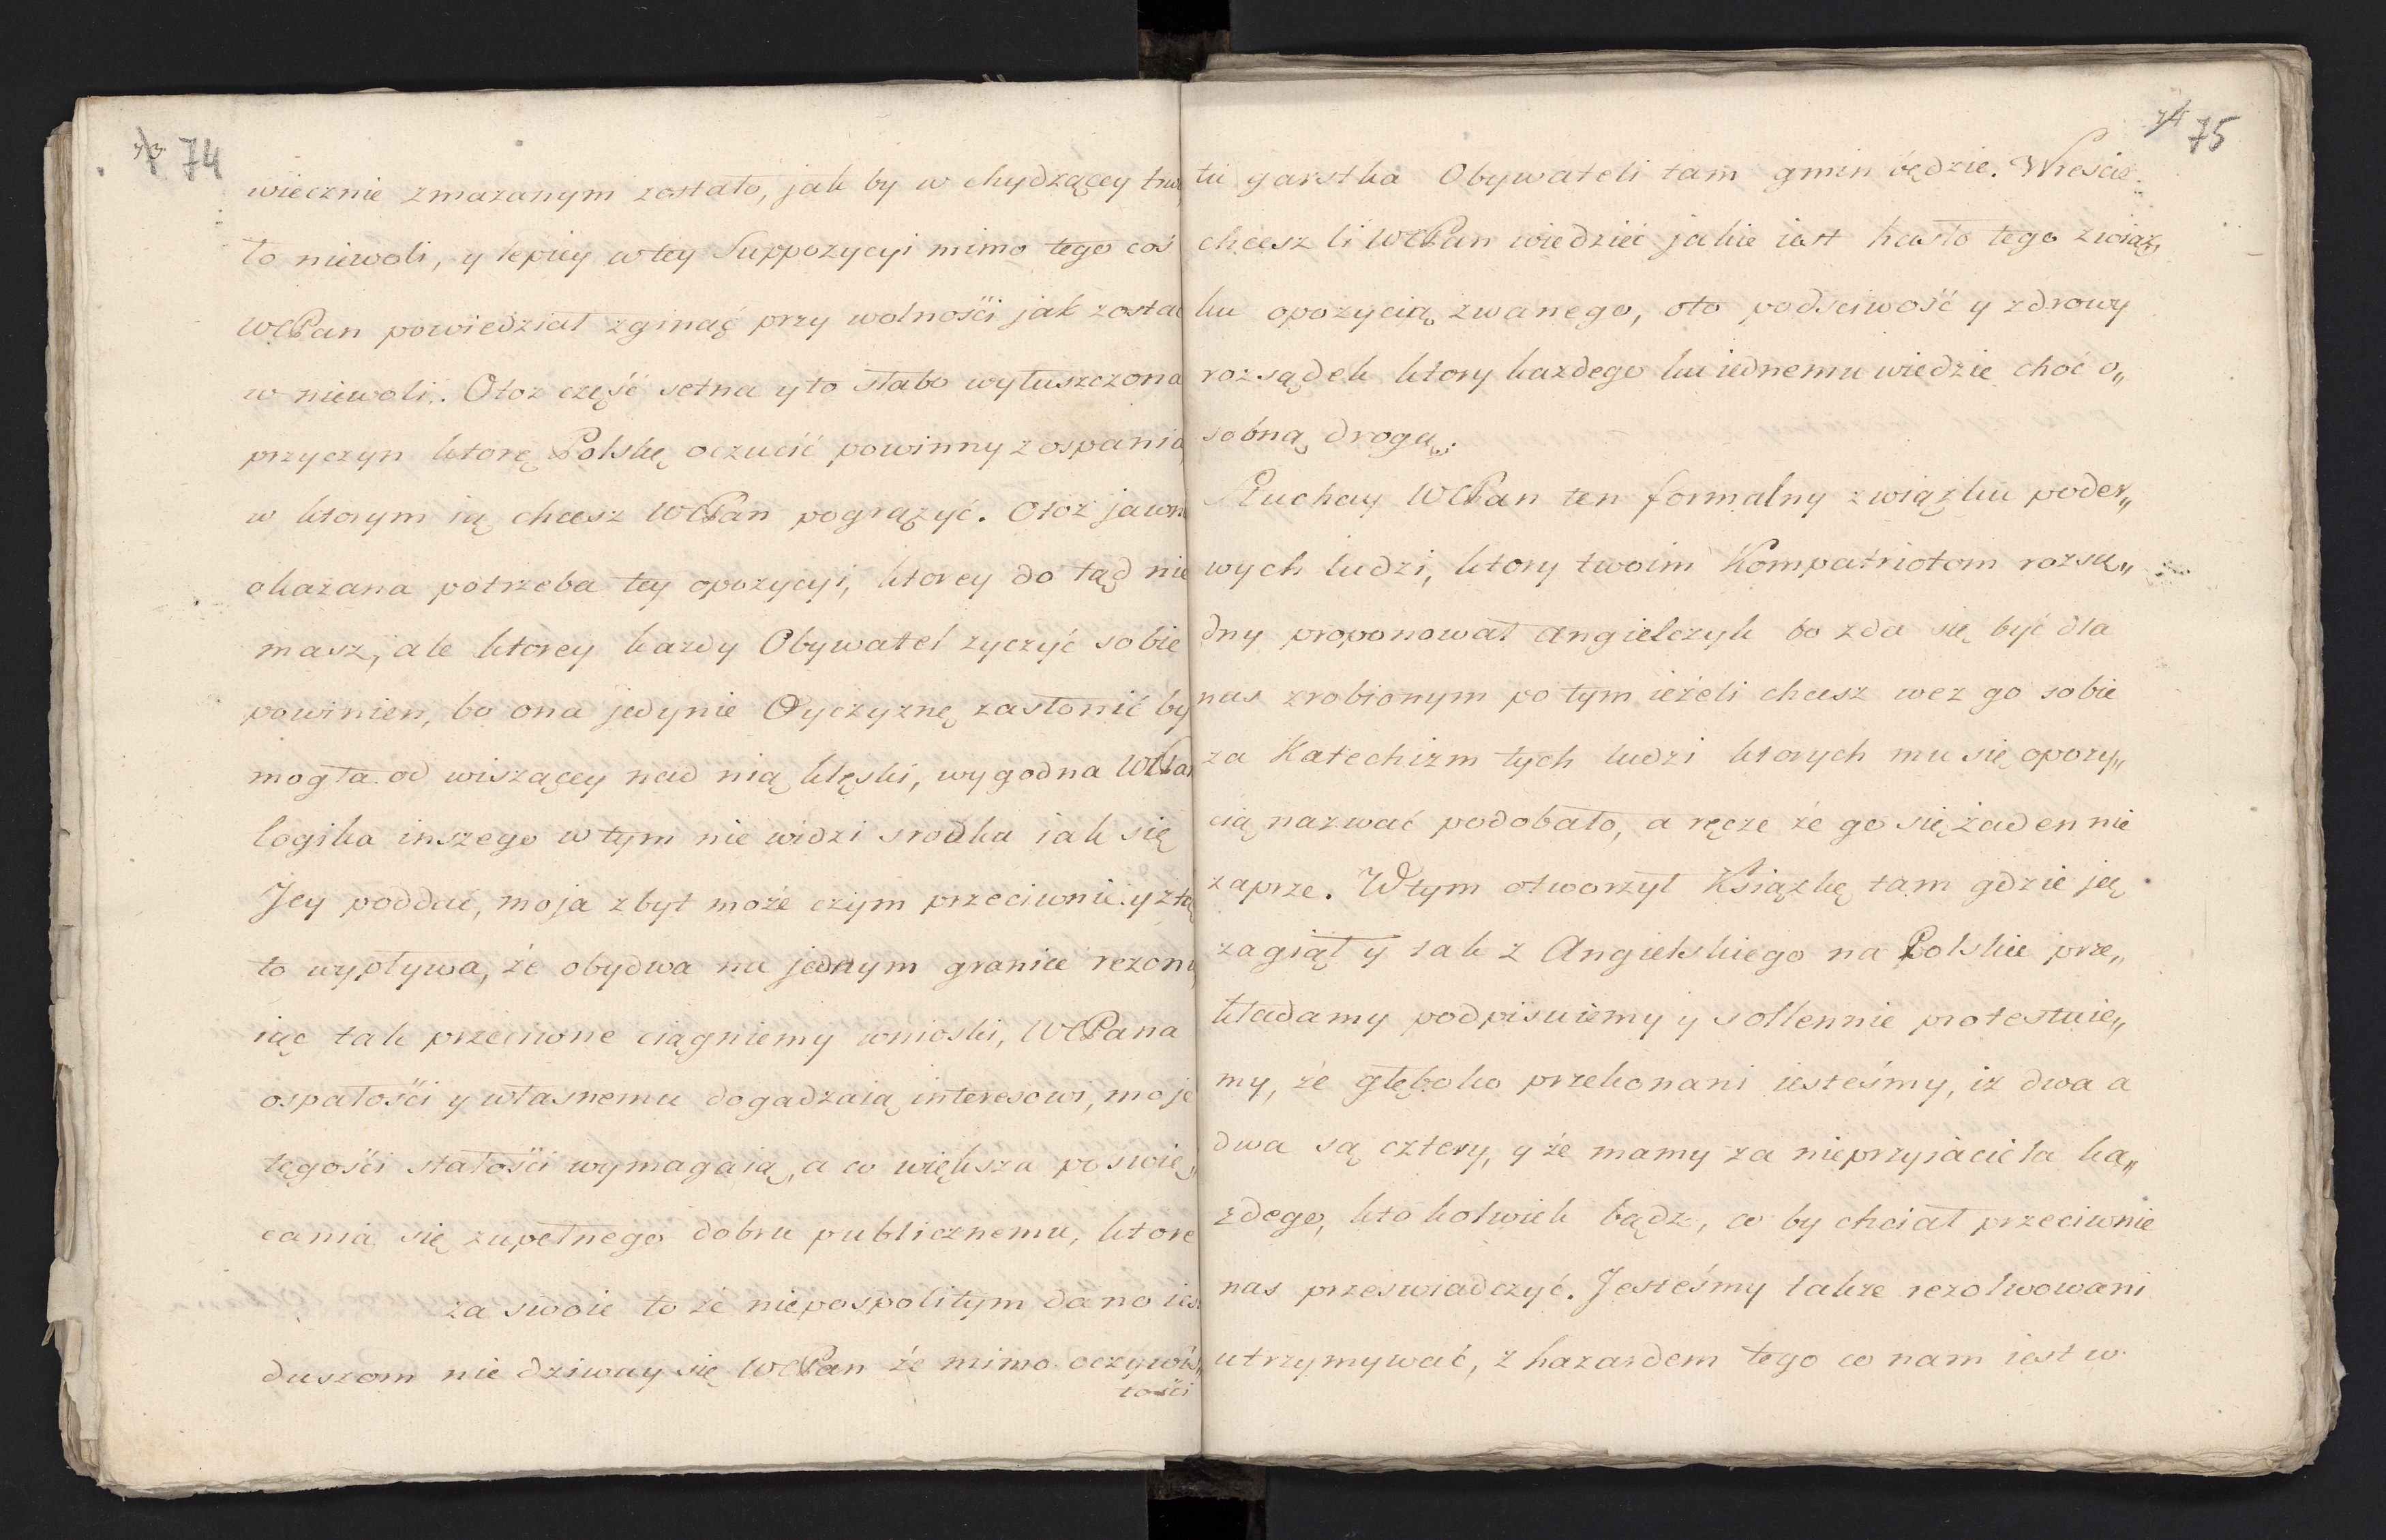 74
wiecznie zmazanym zostało, jak by w chydzącey trwa
ło niewoli, y lepiey w tey Suppozycyi mimo tego coś
WCPan powiedział zginąć przy wolności jak zostać
w niewoli. Otoz część setna y to słabo wyłuszczona
przyczyn ktorę Polskę oczucić powinny z ospania
w ktorym ią chcesz WCPan pogrązyć. Otoz jawn
okazana potrzeba tey opozycyi, ktorey do tąd nie
masz, ale ktorey kazdy Obywatel zyczyć sobie
powinien, bo ona jedynie Oyczyznę zasłonić by
mogła od wiszącey nad nią klęski, wygodna WCPan
logika inszego w tym nie widzi srodka iak się
Jey poddać, moja zbyt może czym przeciwnie y ztą
to wypływa, że obydwa na jednym granice rezonu
iąc tak przeciwne ciągniemy wnioski, WCPana
ospałości y własnemu dogadzaią interesowi, moje
tęgości stałości wymagaią, a co większa poswię„
cania się zupełnego dobru publicznemu, ktore
za swoie to że niepospolitym dano ies
duszom nie dziway się WCPan że mimo oczywis„
tości
75
tu garstka Obywateli tam gmin będzie. Wreście
chcesz li WCPan wiedzieć jakie iest hasło tego związ„
ku opozycią zwanego, oto podsciwość y zdrowy
rozsądek ktory kazdego ku iednemu wiedzie choć o„
sobną drogą.
Słuchay WCPan ten formalny związku poder„
wych ludzi, ktory twoim Kompatriotom rozsą„
dny proponował Angielczyk bo zda się być dla
nas zrobionym po tym ieżeli chcesz wez go sobie
za Katechizm tych ludzi ktorych mu się opozy„
cią nazwać podobało, a ręcze że go się żaden nie
zaprze. W tym otworzył Książkę tam gdzie ję
zagiął y tak z Angielskiego na Polskie prze„
kładamy podpisuiemy y sollennie protestuie„
my, że głęboko przekonani iesteśmy, iz dwa a
dwa są cztery, y że mamy za nieprzyiaciela ka„
zdego, kto kolwiek bądz, co by chciał przeciwnie
nas przeswiadczyć. Jesteśmy takze rezolwowani
utrzymywać, z hazardem tego co nam iest w